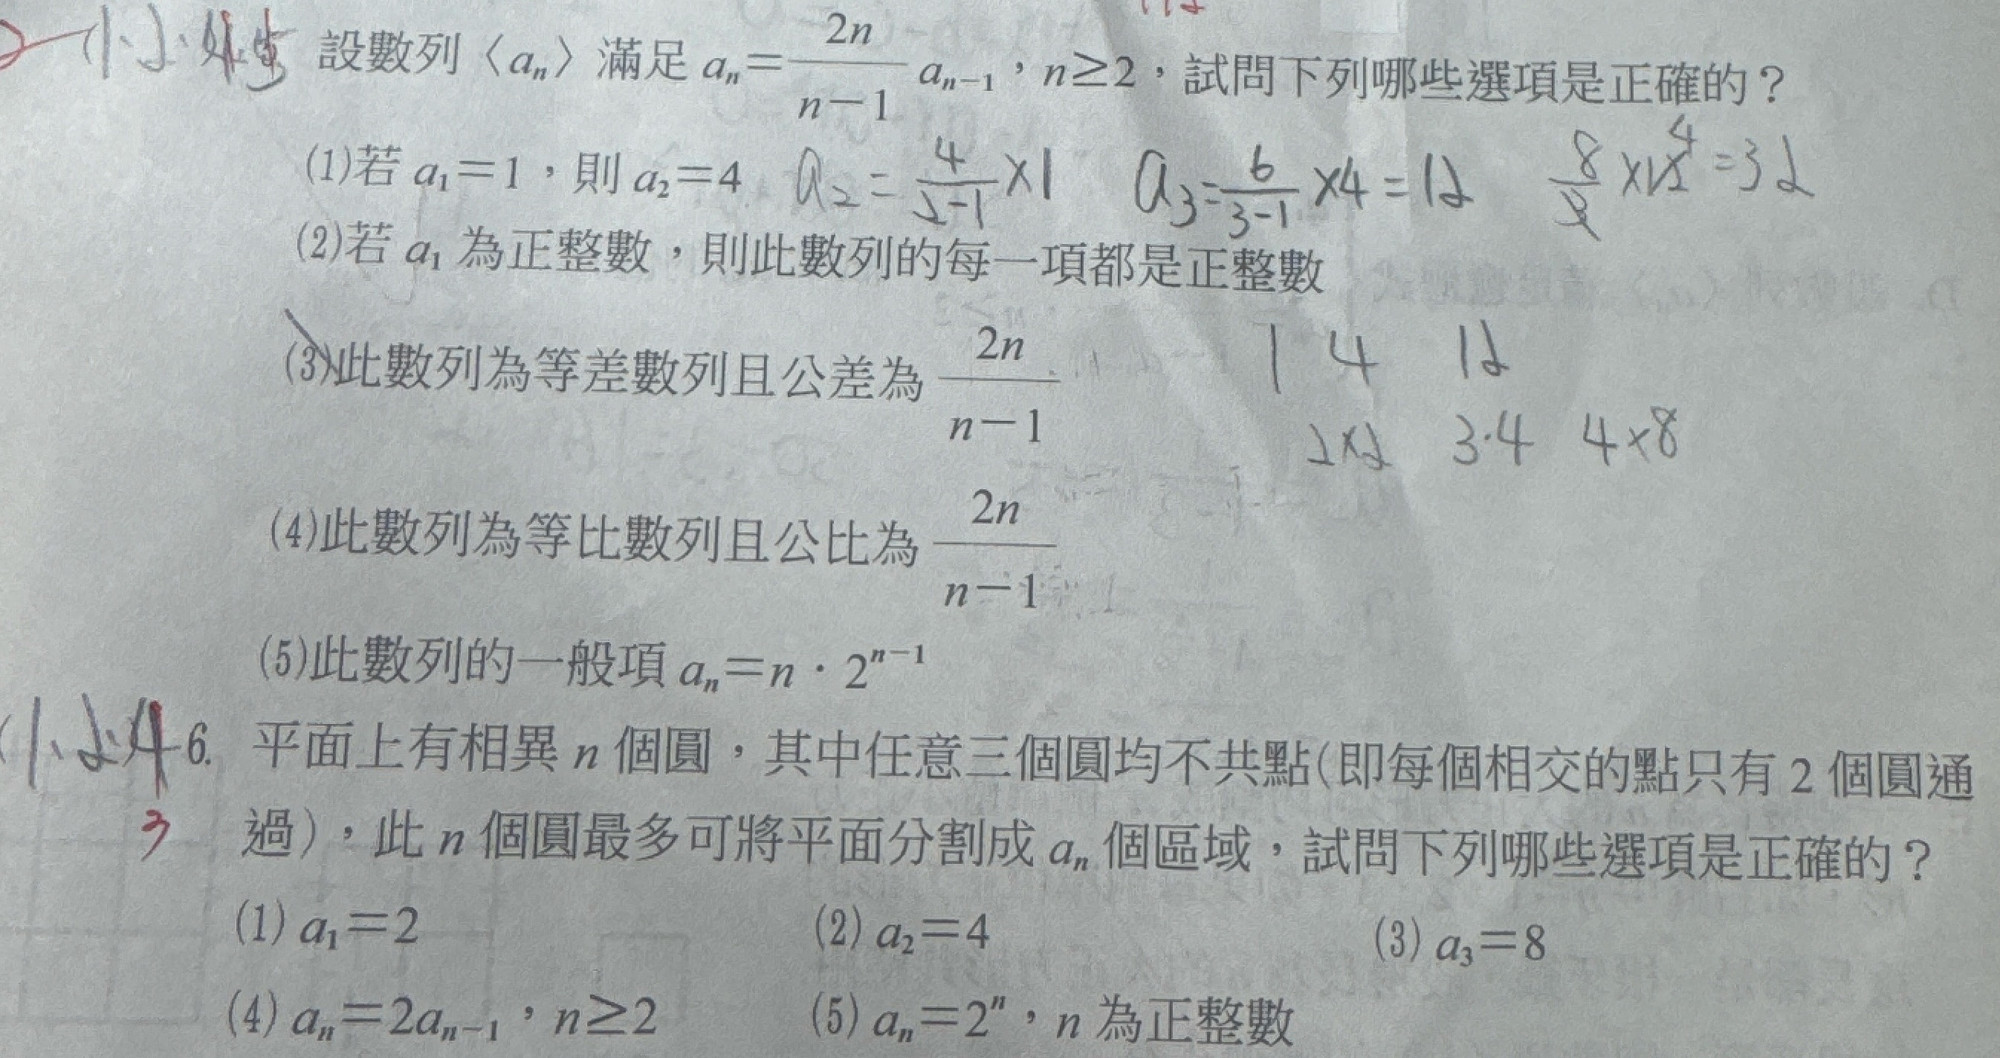 (1、2、4、5 設數列〈aₙ〉滿足 aₙ=2n/(n-1) aₙ₋₁,n≥2,試問下列哪些選項是正確的?
(1)若 a₁=1,則 a₂=4 a₂=4/(2-1)×1 a₃=6/(3-1)×4=12 8/3×12 4=32
(2)若 a₁ 為正整數,則此數列的每一項都是正整數
(3)此數列為等差數列且公差為 2n/(n-1) 1 4 12
2×2 3·4 4×8
(4)此數列為等比數列且公比為 2n/(n-1)
(5)此數列的一般項 aₙ=n·2ⁿ⁻¹
(1、2、4 6. 平面上有相異 n 個圓,其中任意三個圓均不共點(即每個相交的點只有 2 個圓通
3 過),此 n 個圓最多可將平面分割成 aₙ 個區域,試問下列哪些選項是正確的?
(1) a₁=2 (2) a₂=4 (3) a₃=8
(4) aₙ=2aₙ₋₁,n≥2 (5) aₙ=2ⁿ,n 為正整數